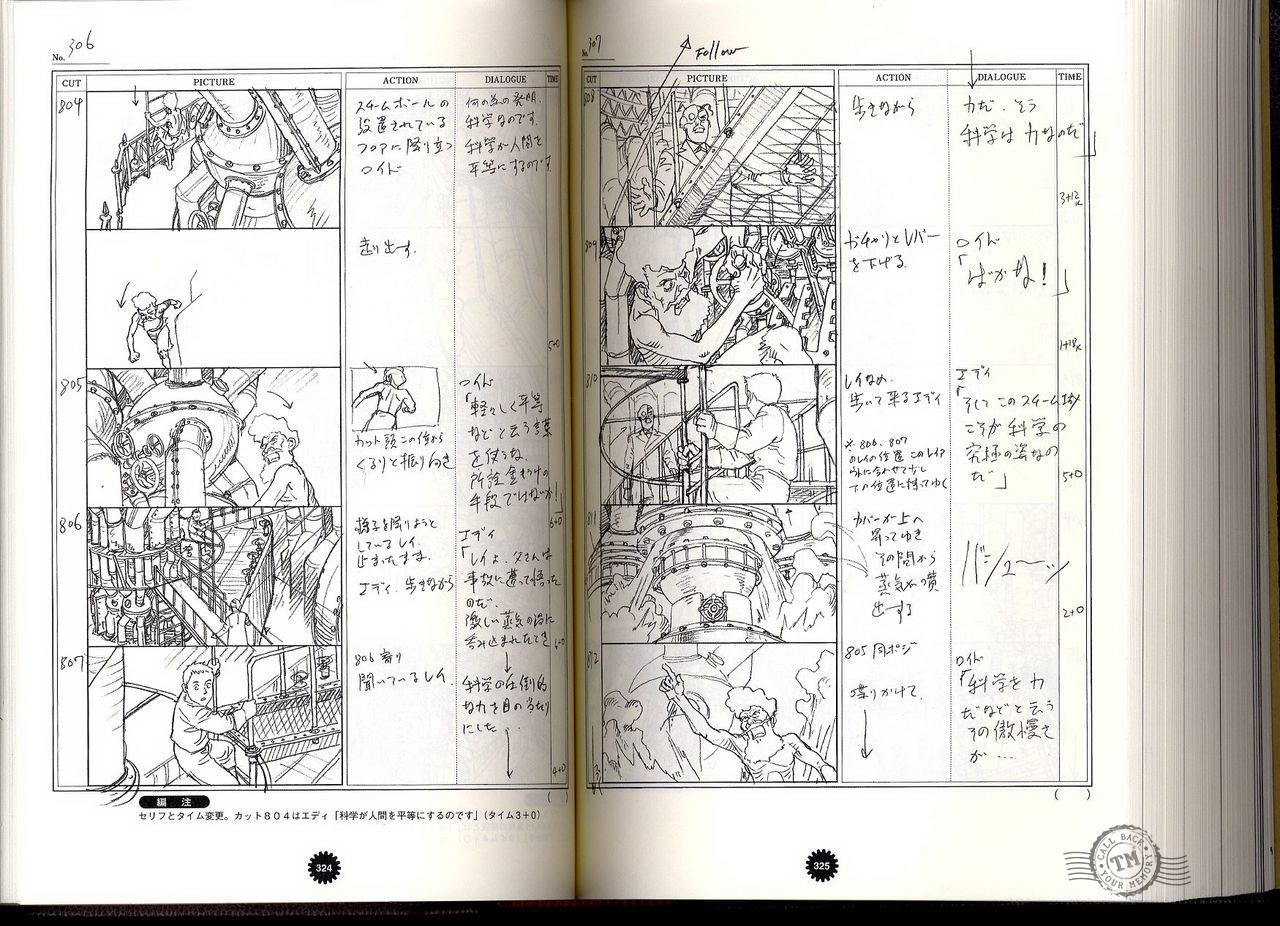 No. 306
CUT PICTURE ACTION DIALOGUE TIME
804
スチームボールの
設置されている
フロアに降り立つ
ロイド
何の為の発明
科学なのです
科学が人間を
平等にするのです
走り出す。
5+0
805
カット頭この位から
くるりと振り向き
ロイド
「軽々しく平等
などと云う言葉
を使うな。
所詮金もうけの
手段ではないか!」
6+0
806
梯子を降りようと
しているレイ
止まったまま。
エディ、歩きながら
エディ
「レイよ、父さんは
事故に遭って悟った
のだ。
激しい蒸気の渦に
呑み込まれたとき
6+0
807
806 寄り
聞いているレイ。
科学の圧倒的
な力を目の当たり
にした
4+0
( )
編 注
セリフとタイム変更。カット804はエディ「科学が人間を平等にするのです」(タイム3+0)
324
No. 307
Follow
CUT PICTURE ACTION DIALOGUE TIME
808
歩きながら
力だ、そう
科学は力なのだ」
3+12
809
ガチャリとレバー
を下げる。
ロイド
「ばかな!」
1+18
810
レイなめ
歩いて来るエディ
※806、807
のレイの位置 このレイアウトに合わせて少し
下の位置に持ってゆく
エディ
「そしてこのスチーム城
こそが科学の
究極の姿なの
だ」
5+0
811
カバーが上へ
昇ってゆき
その間から
蒸気が噴
出する
バシュ〜ッ
2+0
812
805 同ポジ
喋りかけて、
ロイド
「科学を力
だなどと云う
その傲慢さ
が‥‥
( )
325
CALL BACK
TM
YOUR MEMORY